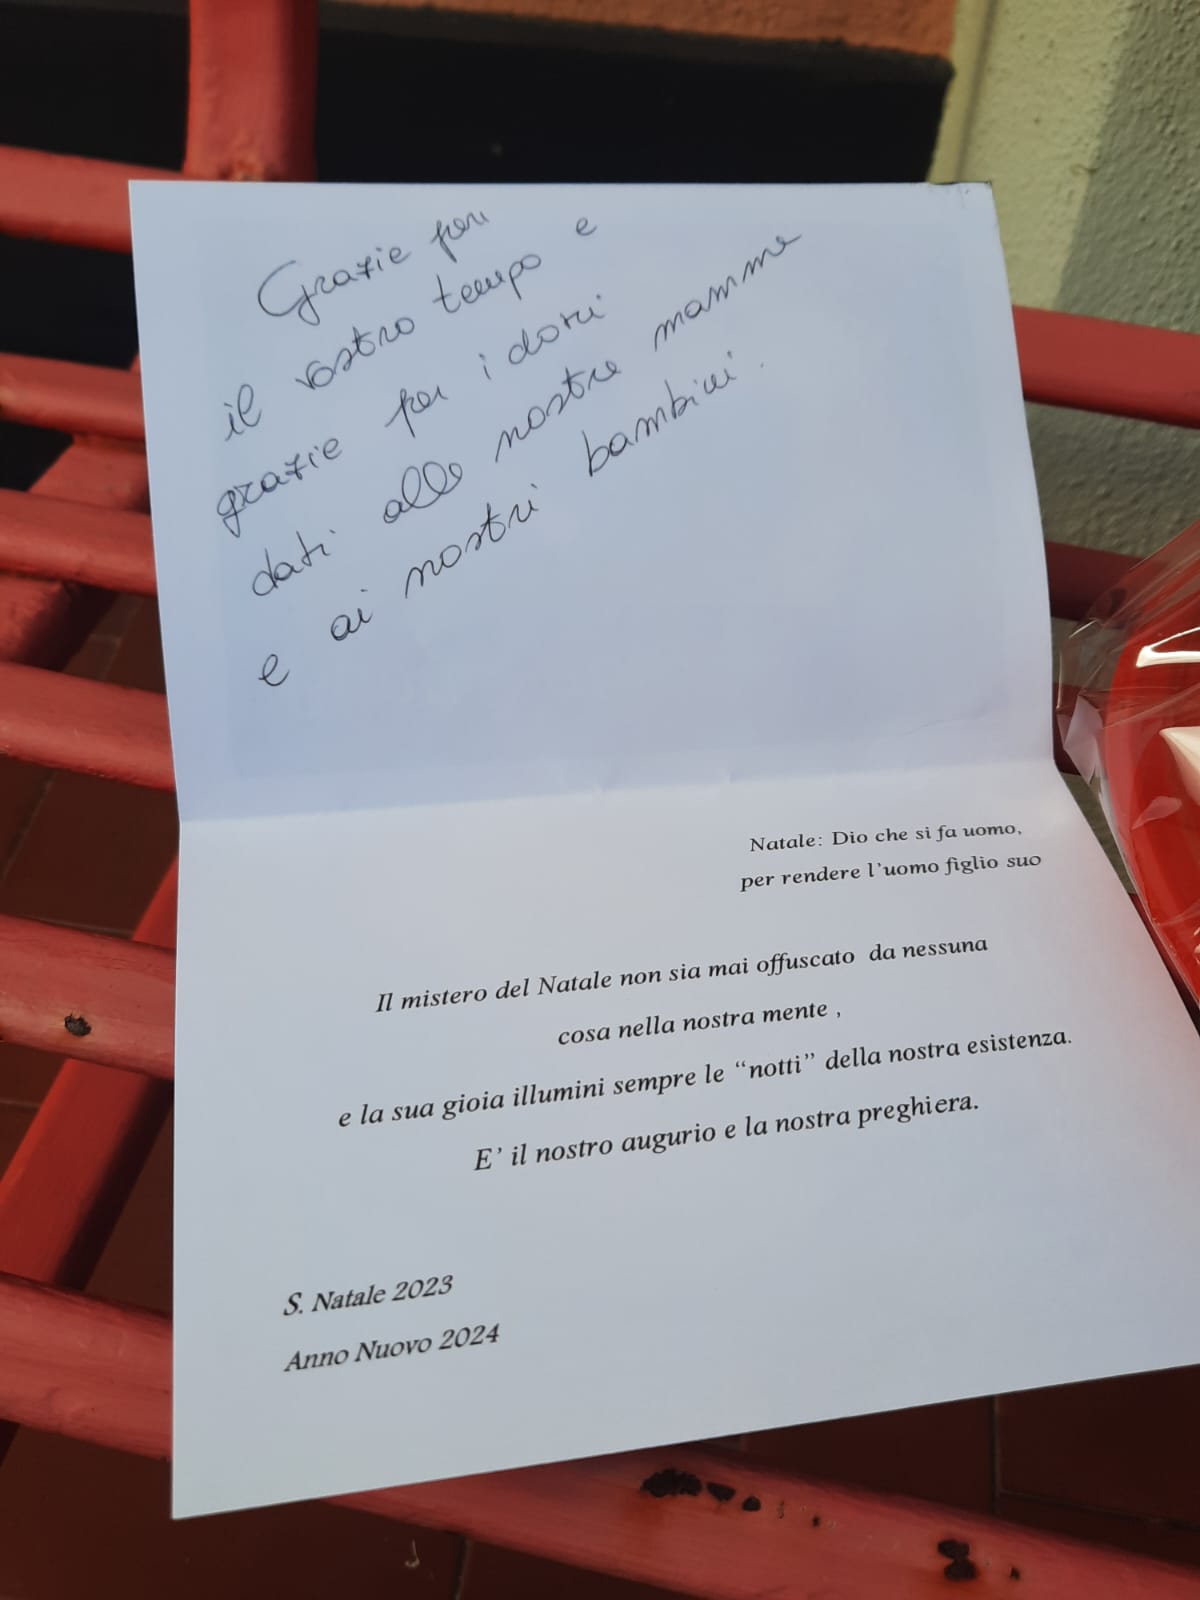 Grazie per
il vostro tempo e
grazie per i doni
dati alle nostre mamme
e ai nostri bambini.
Natale: Dio che si fa uomo,
per rendere l'uomo figlio suo
Il mistero del Natale non sia mai offuscato da nessuna
cosa nella nostra mente ,
e la sua gioia illumini sempre le “notti” della nostra esistenza.
E’ il nostro augurio e la nostra preghiera.
S. Natale 2023
Anno Nuovo 2024